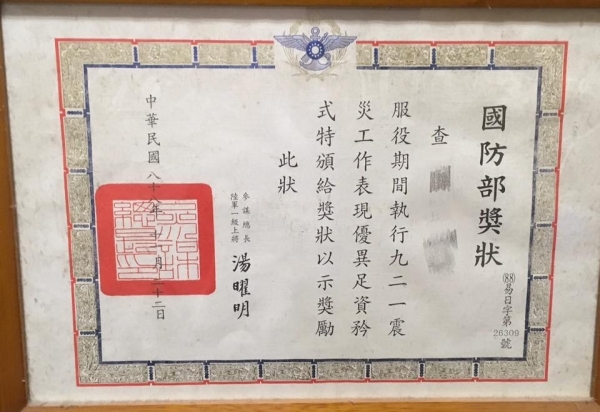 國防部獎狀
(88)易日字第
26309
號
查
服役期間執行九二一震
災工作表現優異足資矜
式特頒給獎狀以示獎勵
此狀
參謀總長
陸軍一級上將
湯曜明
中華民國八十八年十月二十二日